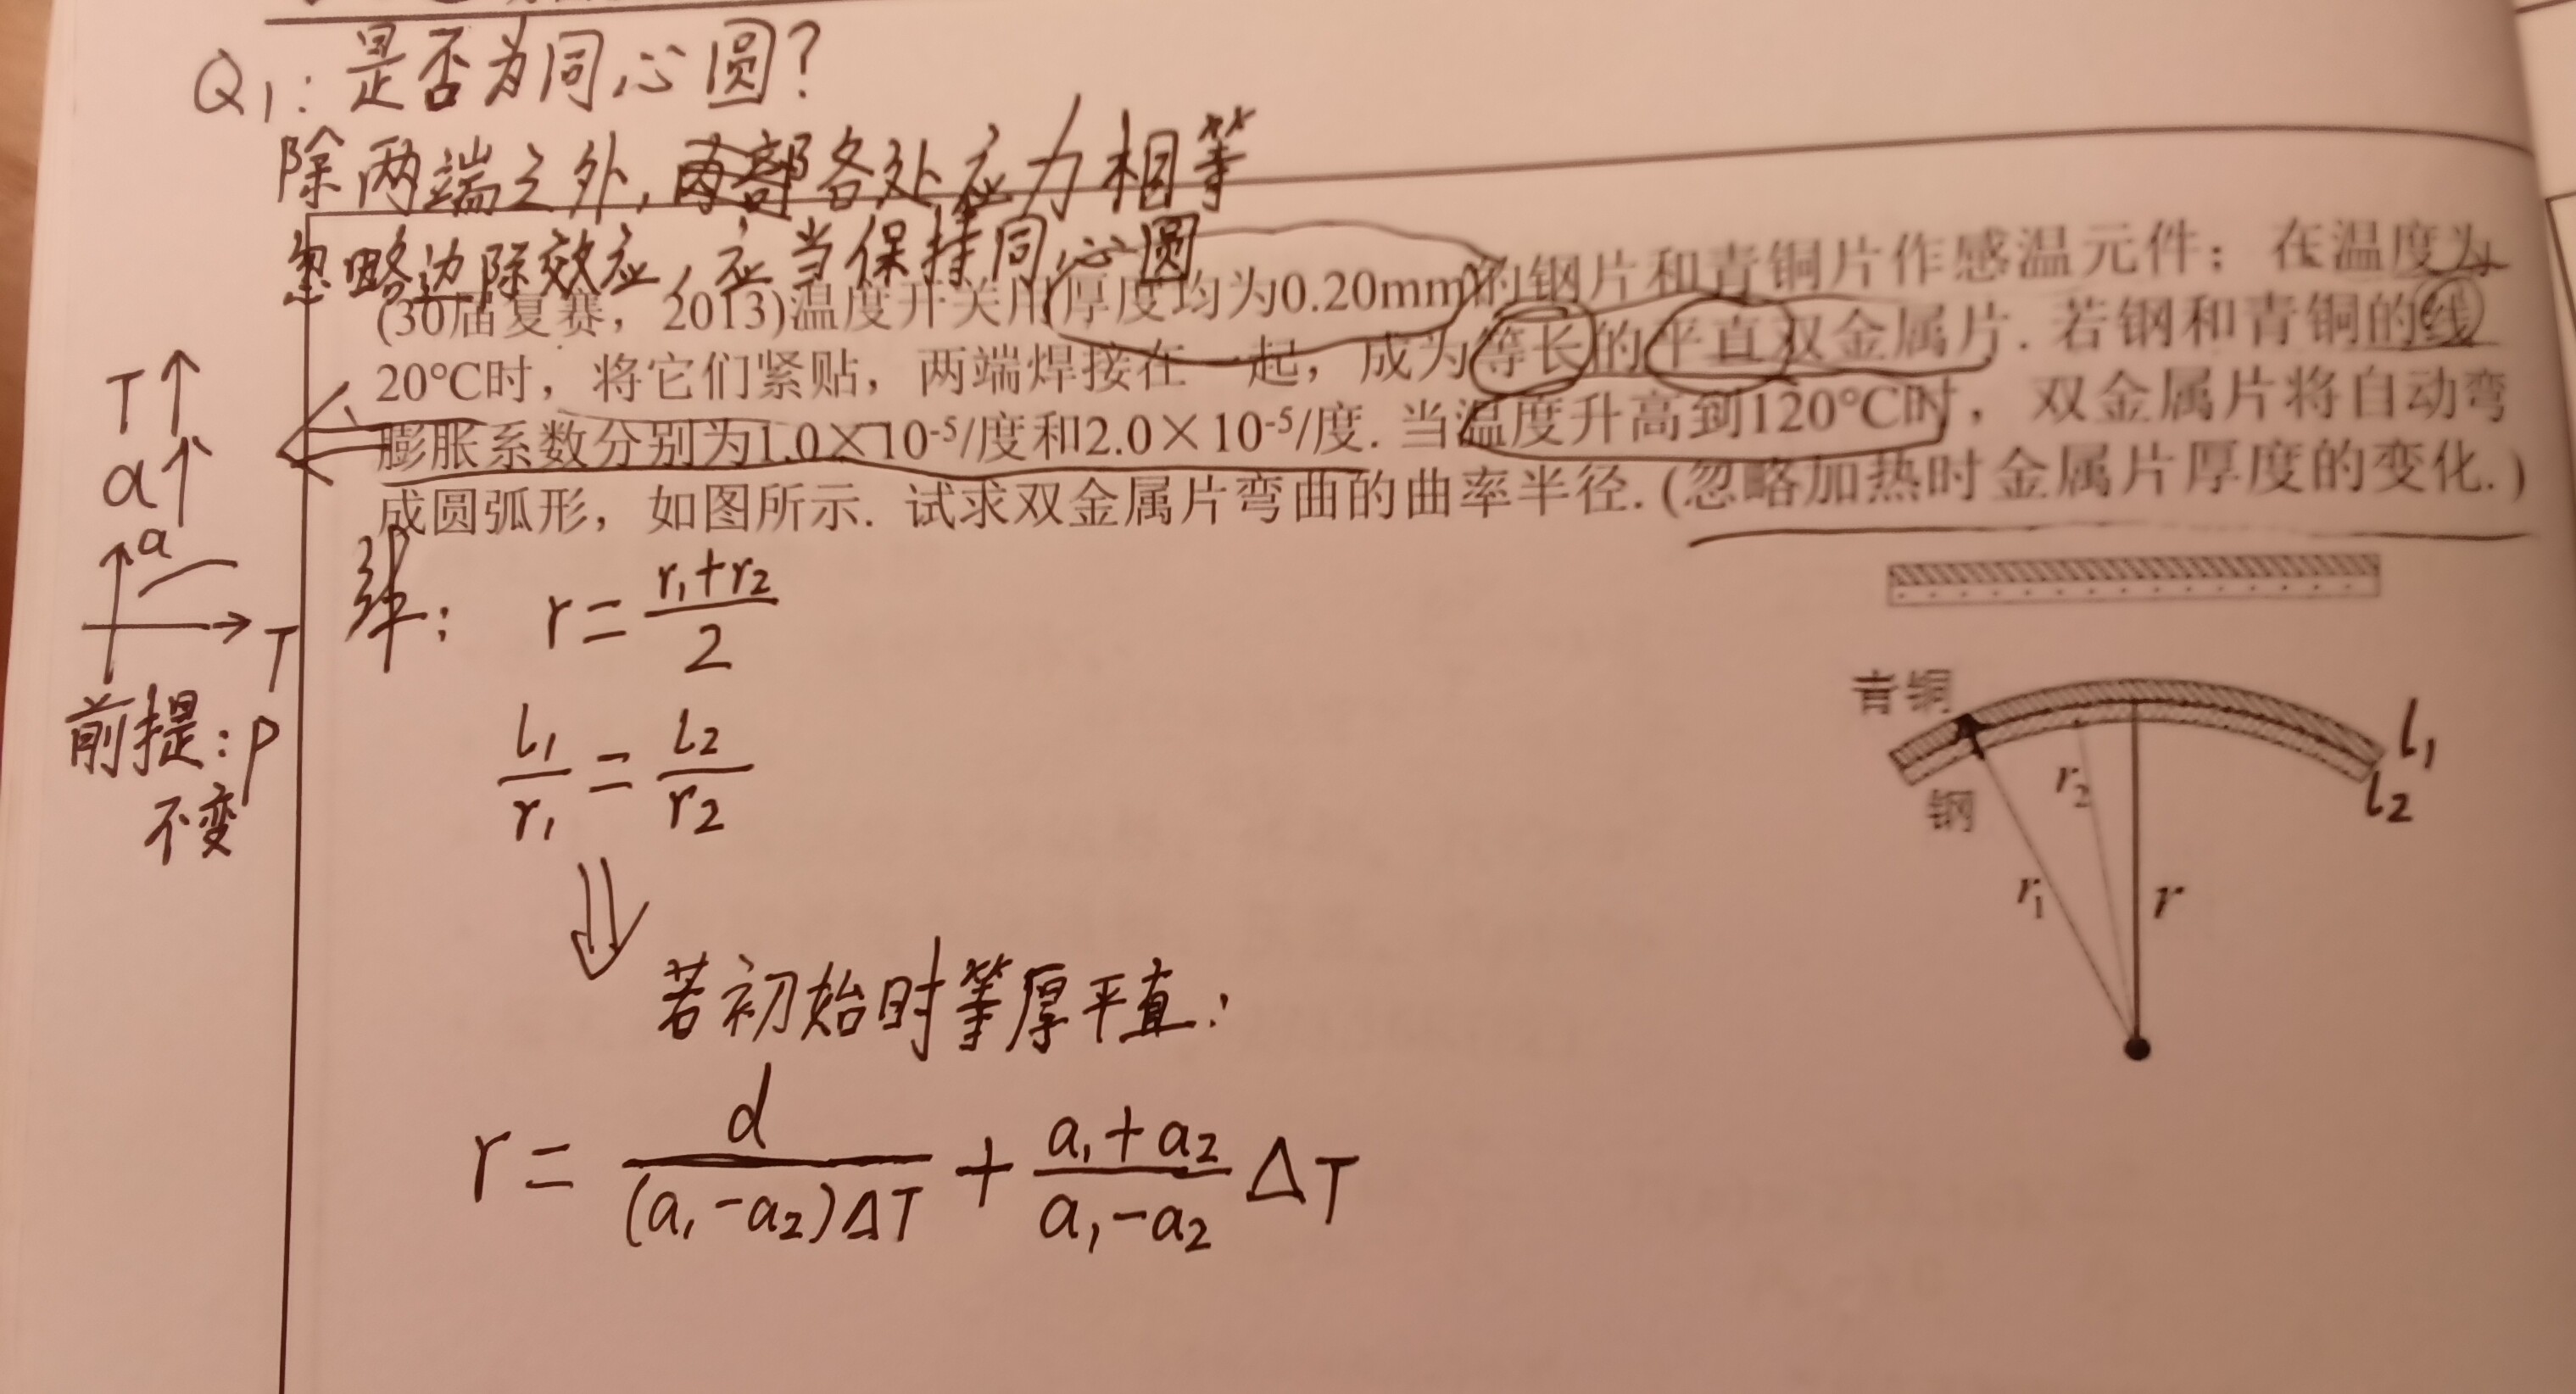 Q1: 是否为同心圆?
除两端之外, 各处应力相等
忽略边际效应, 应当保持同心圆
(30届复赛，2013)温度开关用厚度均为0.20mm的钢片和青铜片作感温元件；在温度为
20℃时，将它们紧贴，两端焊接在一起，成为等长的平直双金属片. 若钢和青铜的线
膨胀系数分别为1.0×10⁻⁵/度和2.0×10⁻⁵/度. 当温度升高到120℃时，双金属片将自动弯
成圆弧形，如图所示. 试求双金属片弯曲的曲率半径. (忽略加热时金属片厚度的变化.)
T↑
a↑
a
T
前提: P
不变
解: r = (r₁+r₂)/2
l₁/r₁ = l₂/r₂
⇓
若初始时等厚平直:
r = d/((a₁-a₂)ΔT) + (a₁+a₂)/(a₁-a₂) ΔT
青铜
l₁
l₂
钢
r₂
r₁
r